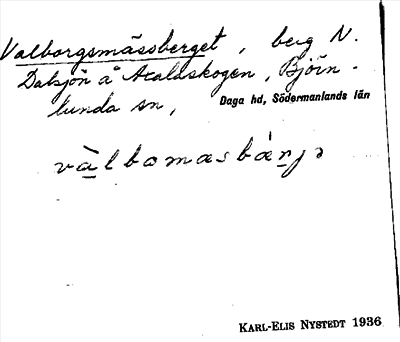 Valborgsmässberget, berg N.
Dalsjön å Åtalaskogen, Björn-
lunda sn, Daga hd, Södermanlands län
và̱lbomæsbæ̀ṉjə
KARL-ELIS NYSTEDT 1936